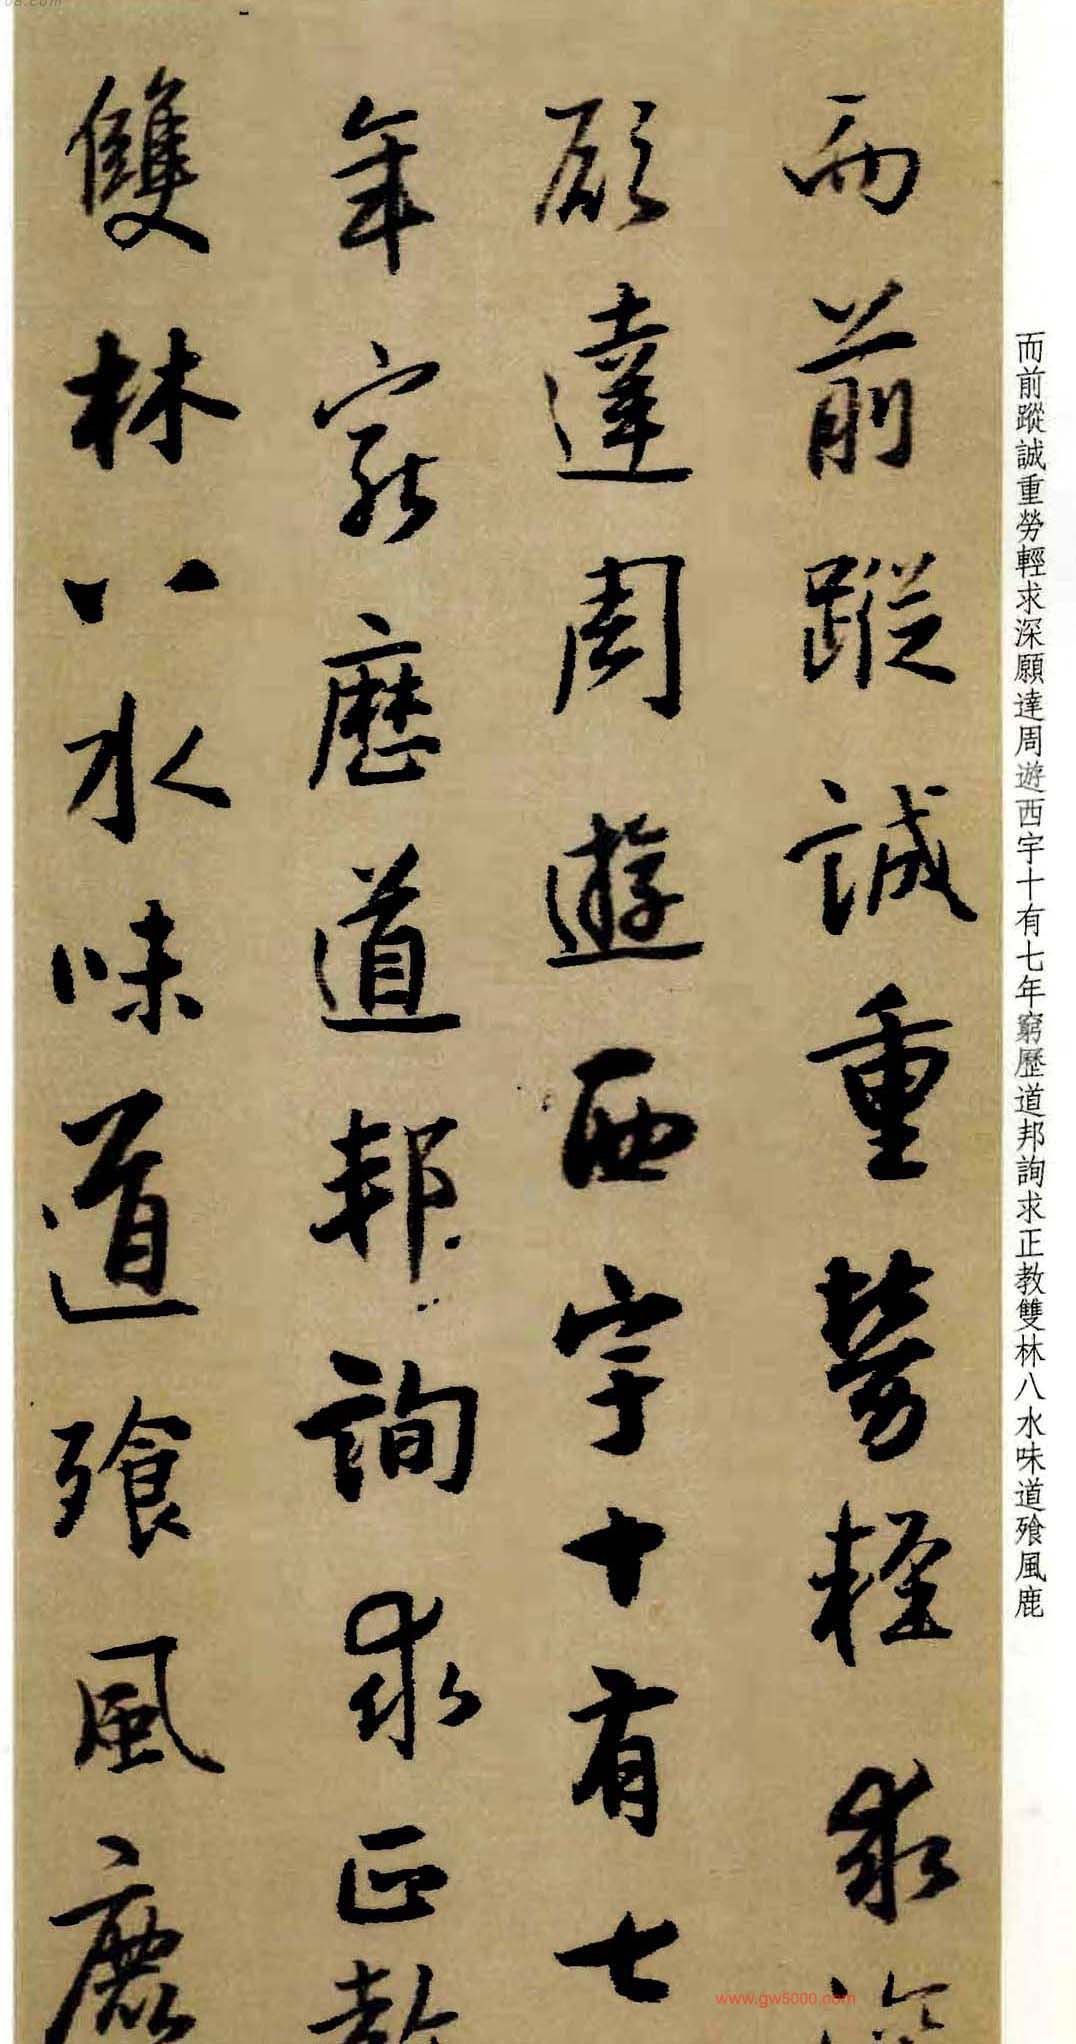 而前蹤誠重勞輕求深
願達周遊西宇十有七
年窮歷道邦詢求正教
雙林八水味道飧風鹿
而前蹤誠重勞輕求深願達周遊西宇十有七年窮歷道邦詢求正教雙林八水味道飧風鹿
www.gw5000.com